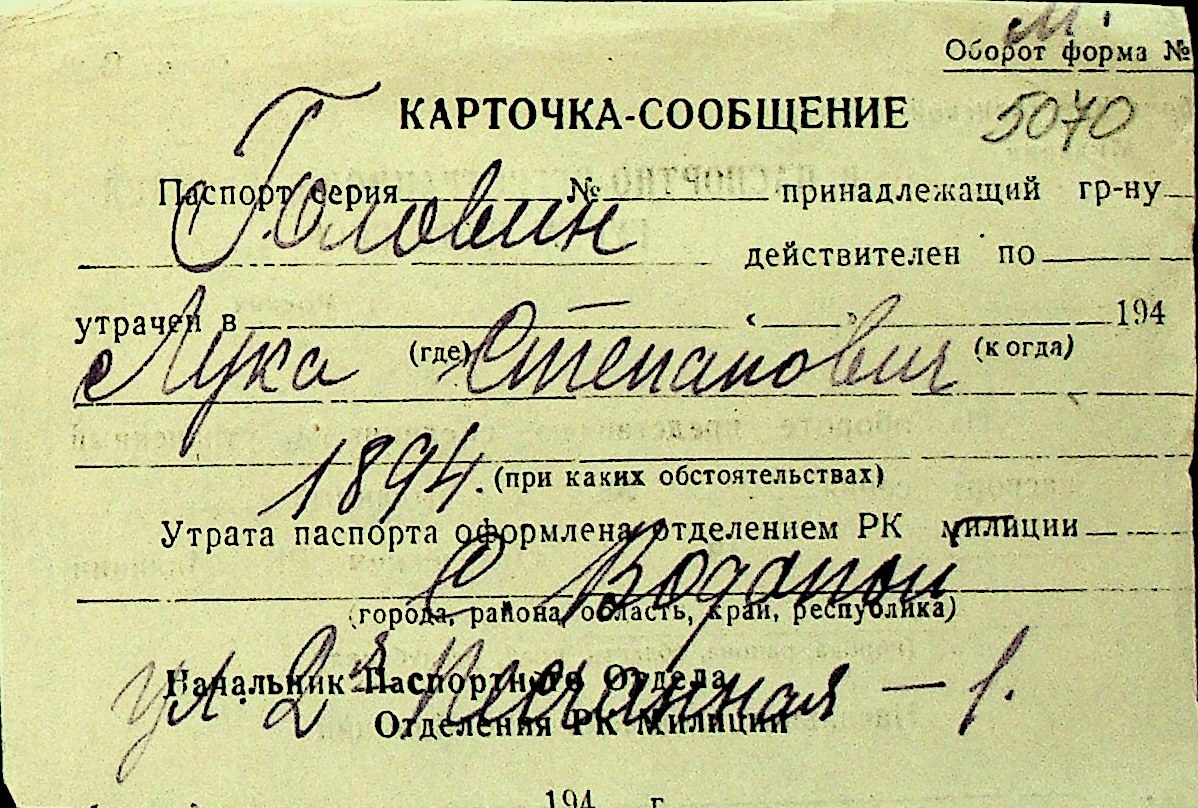 М.
Оборот форма №
КАРТОЧКА-СООБЩЕНИЕ 5070
Паспорт серия № принадлежащий гр-ну
Головин
действителен по
утрачен в « » 194
(где) (когда)
Лука Степанович
1894.
(при каких обстоятельствах)
Утрата паспорта оформлена отделением РК милиции
С Водопой
(города, района, область, край, республика)
ул. 2я Песчанная – 1.
Начальник Паспортного Отдела
Отделения РК Милиции
194 г